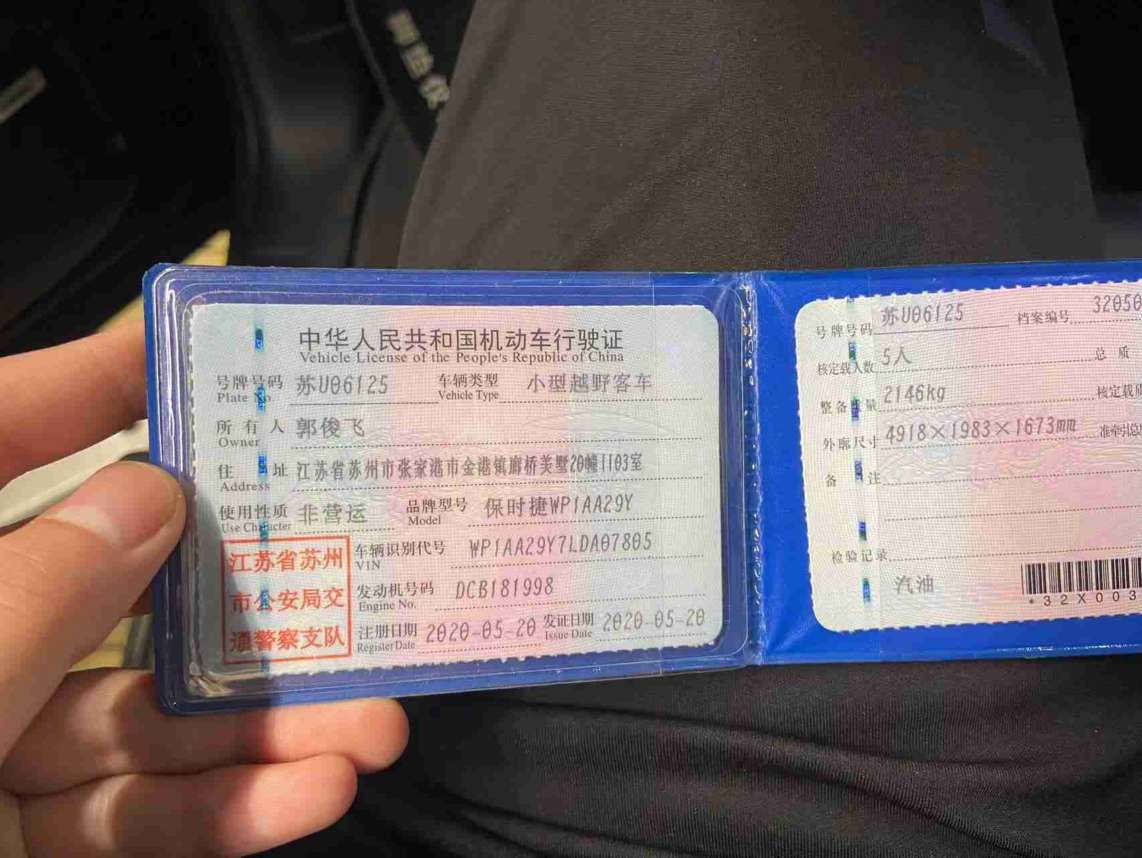 中华人民共和国机动车行驶证
Vehicle License of the People's Republic of China
号牌号码 苏U06125 车辆类型 小型越野客车
Plate No Vehicle Type
所有人 郭俊飞
Owner
住址 江苏省苏州市张家港市金港镇廊桥美墅20幢1103室
Address
使用性质 非营运 品牌型号 保时捷WP1AA29Y
Use Character Model
江苏省苏州
市公安局交
通警察支队
车辆识别代号 WP1AA29Y7LDA07805
VIN
发动机号码 DCB181998
Engine No.
注册日期 2020-05-20 发证日期 2020-05-20
Register Date Issue Date
号牌号码 苏U06125 档案编号 32050
核定载人数 5人 总质
整备质量 2146kg 核定载质
外廓尺寸 4918×1983×1673mm 准牵引总
备注
检验记录
汽油
*32X003